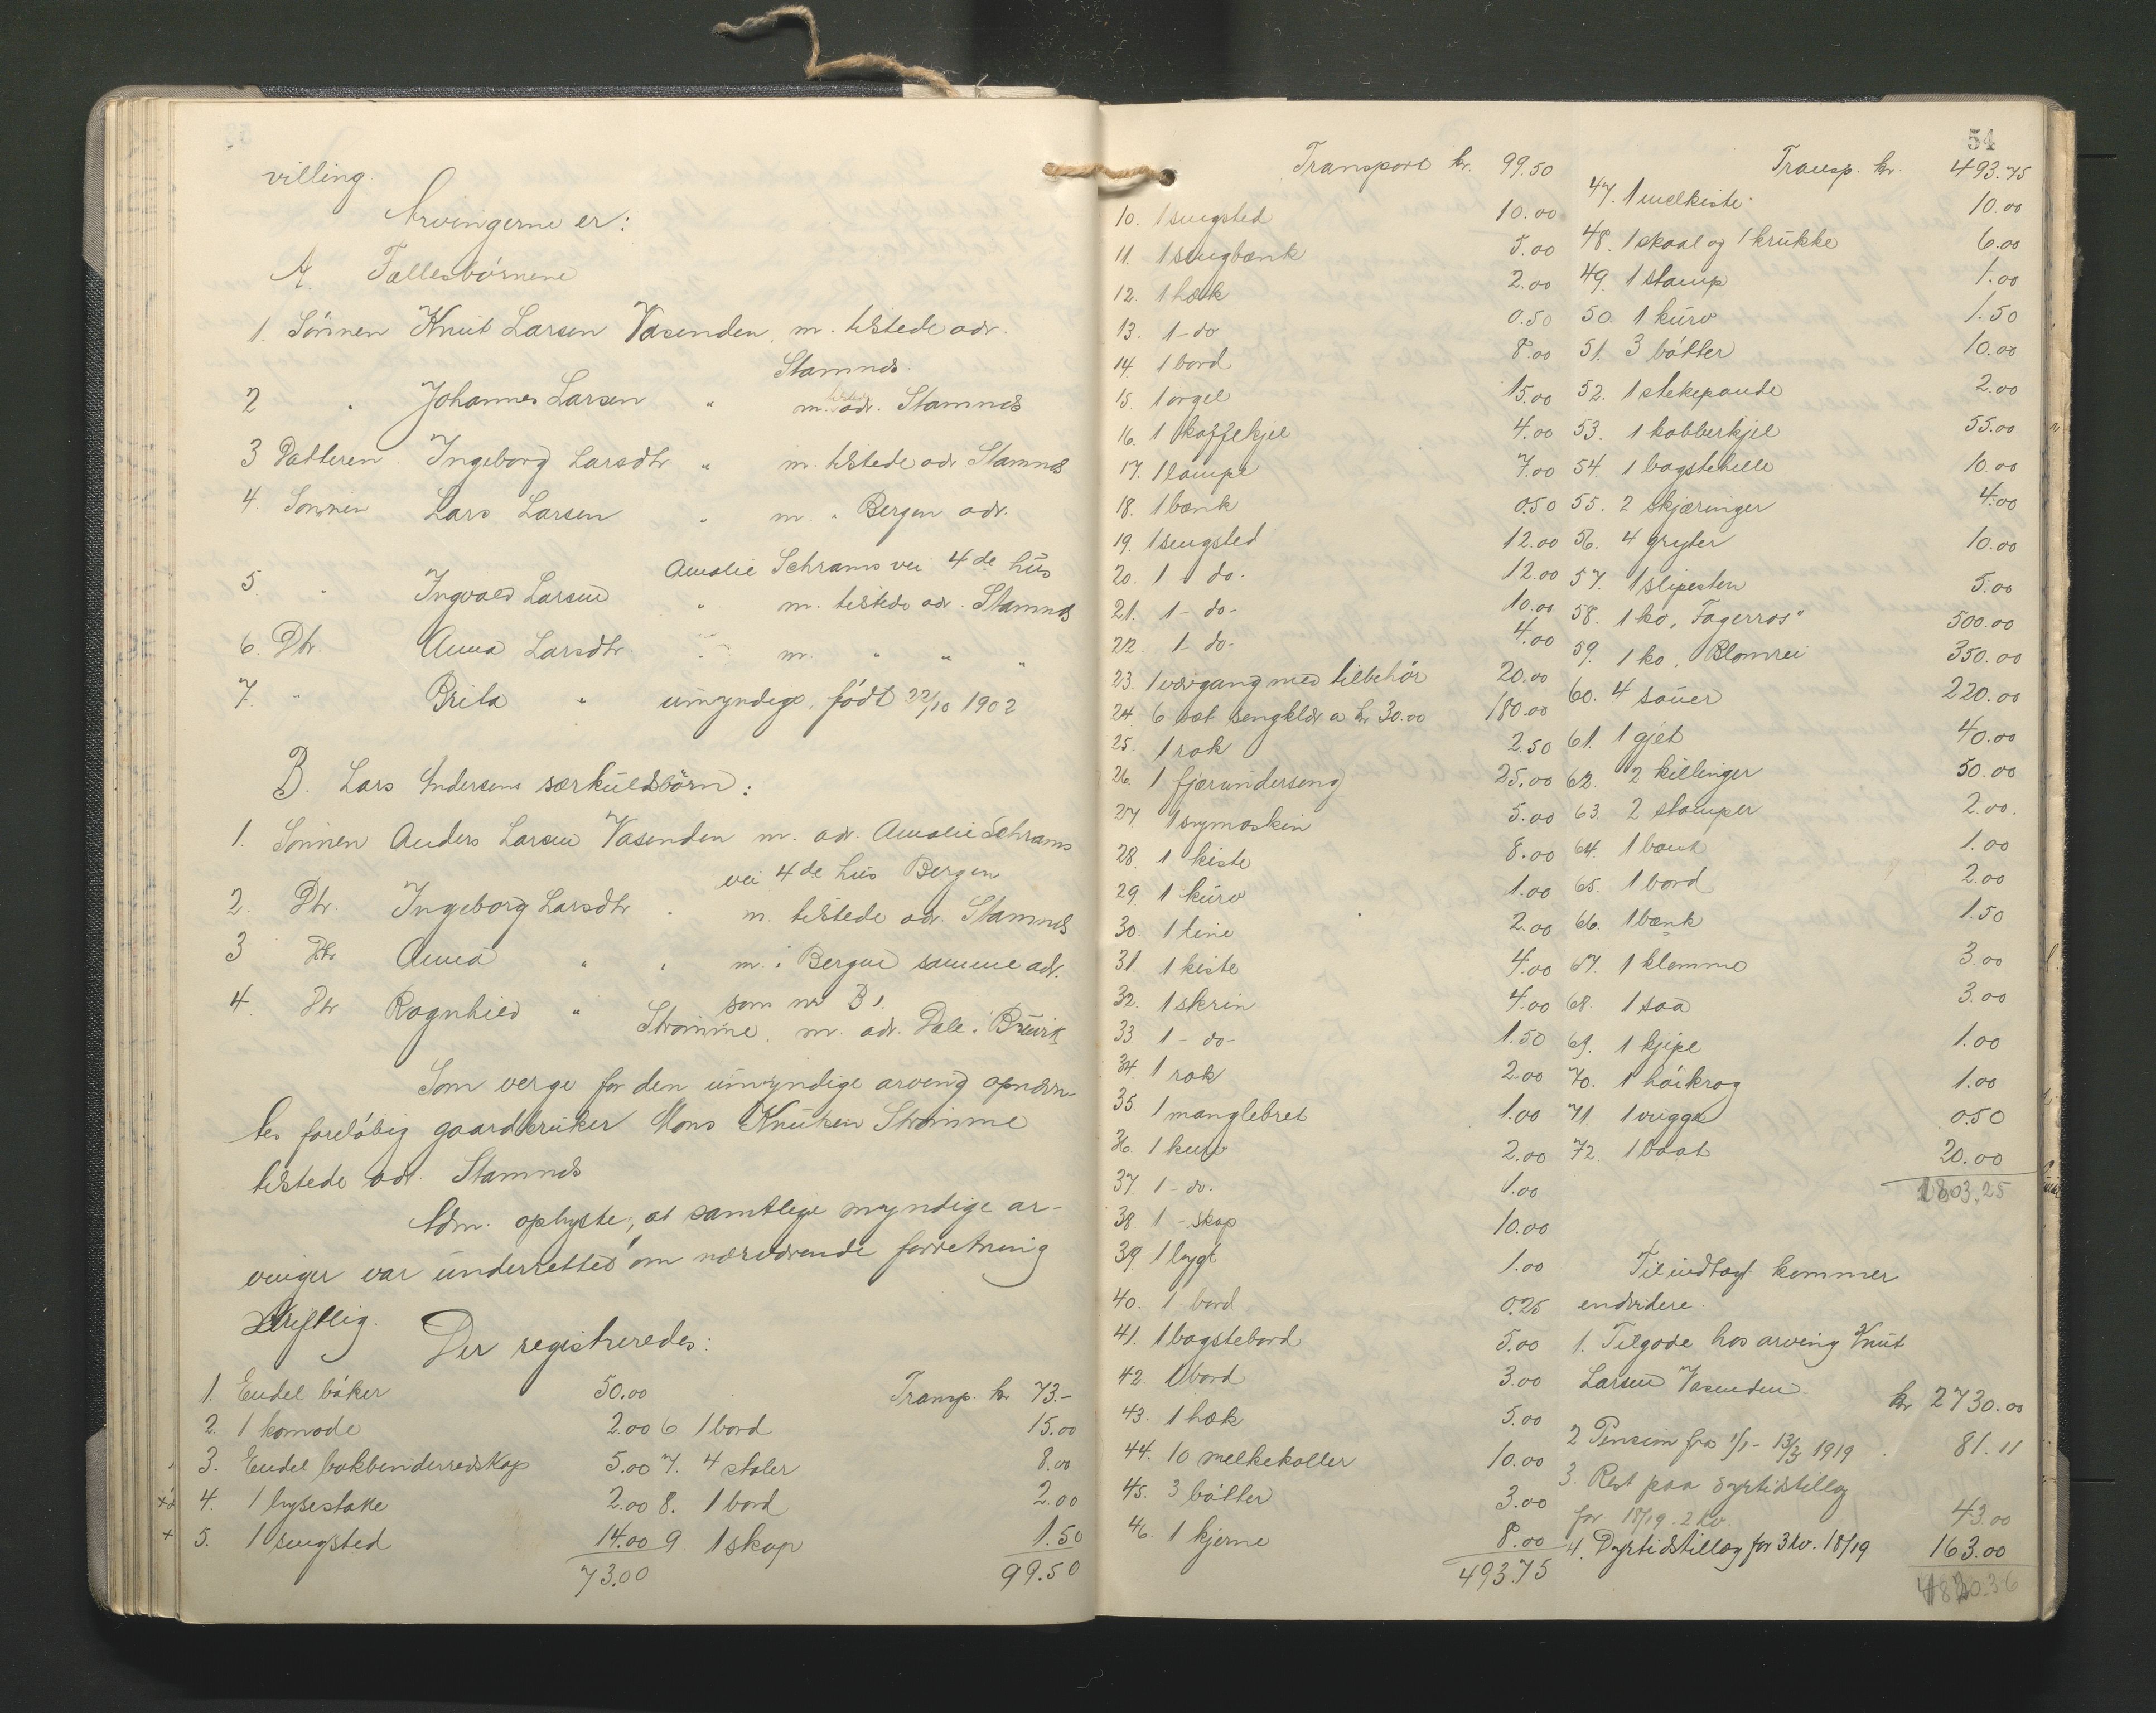 villing.
Arvingerne er:
A. Fællesbörnene
1. Sönnen Knut Larsen Vasenden, m. tilstede adr.
Stamnes.
2 " Johannes Larsen " m. tilstede adr. Stamnes
3 Datteren Ingeborg Larsdtr. " m. tilstede adr Stamnes
4. Sönnen Lars Larsen " m. " Bergen adr.
Amalie Schrams vei 4de hus
5. " Ingvald Larsen " m. tilstede adr. Stamnes
6. Dtr. Anna Larsdtr. " m. " " "
7. " Brita " umyndige, født 22/10 1902
B. Lars Andersens særkuldsbörn:
1. Sönnen Anders Larsen Vasenden m. adr. Amalie Schrams
vei 4de hus Bergen
2. Dtr. Ingeborg Larsdtr " m. tilstede adr. Stamnes
3 Dtr Anna " " m. i Bergen samme adr.
som nr B 1.
4. Dtr Ragnhild " Strømme, m. adr. Dale i Bruvik
Som verge for den umyndige arving opnævn-
tes foreløbig gaardbruker Mons Knutsen Strømme
tilstede adr. Stamnes
Adm. oplyste, at samtlige myndige ar-
vinger var underrettet om nærværende forretning
skriftlig.
Der registreredes:
1. Endel bøker 50.00
2. 1 komode 2.00
3. Endel bokbinderredskap 5.00
4. 1 lysestake 2.00
5. 1 sengsted 14.00
73.00
Transp. kr 73.-
6 1 bord 15.00
7. 4 stoler 8.00
8. 1 bord 2.00
9 1 skap 1.50
99.50
54
Transport kr. 99.50
10. 1 sengsted 10.00
11. 1 sengbænk 5.00
12. 1 hæk 2.00
13. 1 - do 0.50
14 1 bord 8.00
15. 1 orgel 15.00
16. 1 kaffekjel 4.00
17. 1 lampe 7.00
18. 1 bænk 0.50
19. 1 sengsted 12.00
20. 1 - do. 12.00
21. 1 - do - 10.00
22. 1 - do - 4.00
23. 1 vævgang med tilbehör 20.00
24. 6 sæt sengklær a kr 30.00 180.00
25. 1 rok 2.50
26. 1 fjærunderseng 25.00
27 1 symaskin 5.00
28. 1 kiste 8.00
29. 1 kurv 1.00
30. 1 tine 2.00
31. 1 kiste 4.00
32. 1 skrin 4.00
33 1 - do - 1.50
34. 1 rok 2.00
35. 1 manglebret 1.00
36. 1 kurv 2.00
37. 1 - do. 1.00
38. 1 - skap 10.00
39 1 lygt 1.00
40. 1 bord 0.25
41. 1 bagstebord 5.00
42. 1 bord 3.00
43. 1 hæk 5.00
44. 10 melkekoller 10.00
45. 3 bøtter 3.00
46. 1 kjerne 8.00
493.75
Transp. kr. 493.75
47. 1 melkiste 10.00
48. 1 skaal og 1 krukke 6.00
49. 1 stamp 1.00
50. 1 kurv 1.50
51. 3 bøtter 10.00
52. 1 stekepande 2.00
53. 1 kobberkjel 55.00
54. 1 bagstehelle 10.00
55. 2 skjæringer 4.00
56. 4 gryter 10.00
57. 1 slipesten 5.00
58. 1 ko, "Fagerros" 500.00
59. 1 ko, Blomrei 350.00
60. 4 sauer 220.00
61. 1 gjet 40.00
62. 2 killinger 50.00
63. 2 stamper 2.00.
64. 1 bænk 1.00
65. 1 bord 2.00
66. 1 bænk 1.50
67. 1 klemme 3.00
68. 1 saa 3.00
69. 1 kjipe 1.00
70. 1 høikrog 1.00
71. 1 vugge 0.50
72. 1 baat 20.00
1803.25
Til indtægt kommer
endvidere.
1. Tilgode hos arving Knut
Larsen Vasenden kr 2730.00
2 Pension fra 1/1 - 13/3 1919 81.11
3. Rest paa dyrtidstillæg
for 18/19. 2 kv. 43.00
4. Dyrtidstillæg for 3 kv. 18/19 163.00
4820.36